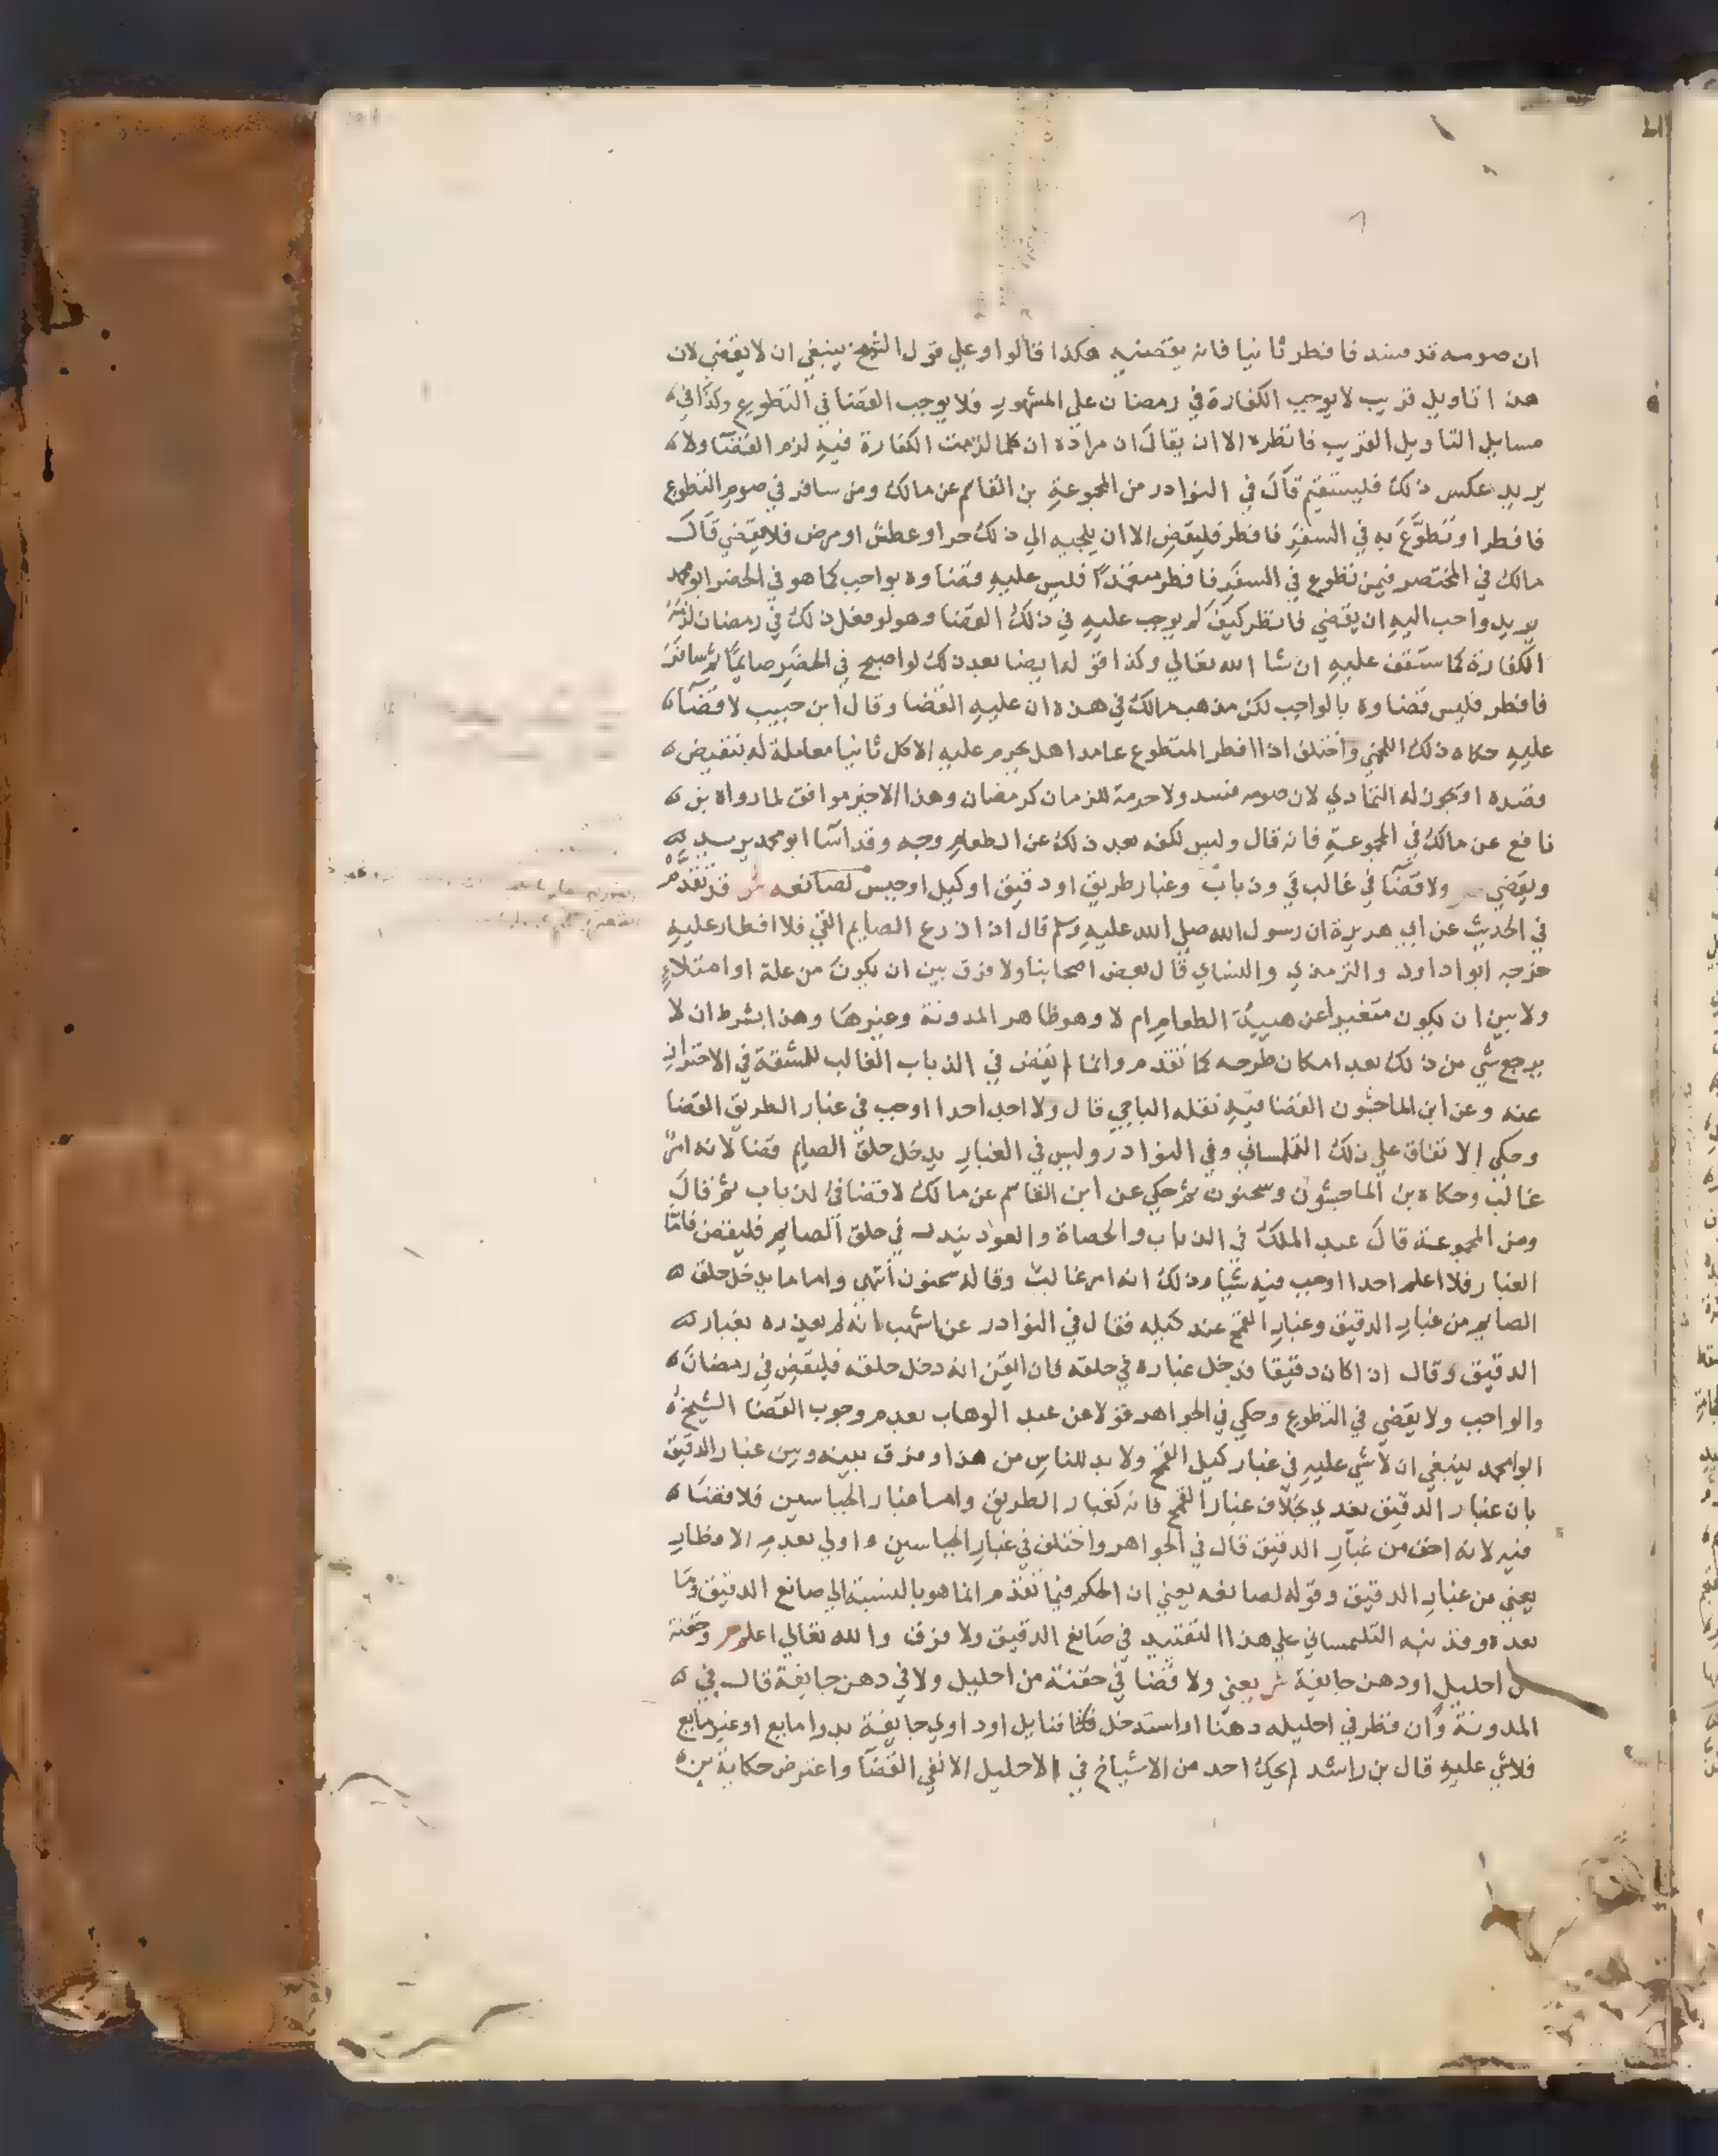 ان صومه قد فسد فافطر ثانيا فانه يقضيه هكذا قالوا وعلي قول الشيخ ينبغي ان لا يقضي لان
هذا تاويل قريب لا يوجب الكفارة في رمضان علي المشهور فلا يوجب القضا في التطوع وكذا في
مسايل التاويل القريب فانظره الا ان يقال ان مراده ان كلما لزمت الكفارة فيه لزم القضا ولا
يريد عكس ذلك فليستقيم قال في النوادر من المجموعة بن القاسم عن مالك ومن سافر في صوم التطوع
فافطر او تطوع به في السفر فافطر فليقض الا ان يلجيه الي ذلك حر او عطش او مرض فلا يقضي قال
مالك في المختصر فيمن تطوع في السفر فافطر متعمدا فليس عليه قضاوه بواجب كما هو في الحضر ابو محمد
يريد واحب اليه ان يقضي فانظر كيف لم يوجب عليه في ذلك القضا وهو لو فعل ذلك في رمضان لزمته
الكفارة كما ستقف عليه ان شا الله تعالي وكذا قوله ايضا بعد ذلك لو اصبح في الحضر صايما ثم سافر
فافطر فليس قضاوه بالواجب لكن مذهب مالك في هذه ان عليه القضا وقال ابن حبيب لا قضا
عليه حكاه ذلك اللخمي واختلف اذا افطر المتطوع عامدا هل يحرم عليه الاكل ثانيا معاملة له بنقيض
قصده او يجوز له التمادي لان صومه فسد ولا حرمة للزمان كرمضان وهذا الاخير موافق لما رواه بن
نافع عن مالك في المجموعة فانه قال وليس لكفه بعد ذلك عن الطعام وجه وقد اسا ابو محمد يريد
ويقضي ولا قضا في غالب قي وذباب وغبار طريق او دقيق او كيل او جبس لصانعه ش قد تقدم
في الحديث عن ابي هريرة ان رسول الله صلي الله عليه وسلم قال اذا ذرع الصايم القي فلا افطار عليه
خرجه ابوا داود والترمذي والنساي قال بعض اصحابنا ولا فرق بين ان يكون من علة او امتلاء
ولا بين ان يكون متغيرا عن هيية الطعام ام لا وهو ظاهر المدونة وغيرها وهذا بشرط ان لا
يرجع شي من ذلك بعد امكان طرحه كما تقدم وانما لم يقض في الذباب الغالب للمشقة في الاحتراز
عنه وعن ابن الماجشون القضا فيه نقله الباجي قال ولا احد احدا اوجب في غبار الطريق القضا
وحكي الاتفاق علي ذلك التلمساني وفي النوادر وليس في الغبار يدخل حلق الصايم قضا لانه امر
غالب وحكاه بن الماجشون وسحنون ثم حكي عن ابن القاسم عن مالك لا قضا في الذباب ثم قال
ومن المجموعة قال عبد الملك في الذباب والحصاة والعود يبدر في حلق الصايم فليقض فاما
الغبار فلا اعلم احدا اوجب فيه شيا وذلك انه امر غالب وقاله سحنون انتهي واما ما يدخل حلق
الصايم من غبار الدقيق وغبار القمح عند كيله فقال في النوادر عن اشهب انه لم يعذره بغبار
الدقيق وقال اذا كان دقيقا فدخل غباره في حلقه فان ايقن انه دخل حلقه فليقض في رمضان
والواجب ولا يقضي في التطوع وحكي في الجواهر قولا عن عبد الوهاب بعدم وجوب القضا الشيخ
ابوا محمد ينبغي ان لا شي عليه في غبار كيل القمح ولا بد للناس من هذا وفرق بينه وبين غبار الدقيق
بان غبار الدقيق يغدي بخلاف غبار القمح فانه كغبار الطريق واما غبار الجباسين فلا قضا
فيه لانه اخف من غبار الدقيق قال في الجواهر واختلف في غبار الجباسين واولي بعدم الافطار
يعني من غبار الدقيق وقوله لصانعه يعني ان الحكم فيما تقدم انما هو بالنسبة الي صانع الدقيق وما
بعده وقد نبه التلمساني علي هذا التقييد في صانع الدقيق ولا فرق والله تعالي اعلم ص وحقنة
من احليل او دهن جايفة ش يعني ولا قضا في حقنة من احليل ولا في دهن جايفة قال في
المدونة وان قطر في احليله دهنا او استدخل فتايل او داوي جايفة بدوا مايع او غير مايع
فلا شي عليه قال بن راشد لم يحك احد من الاشياخ في الاحليل الا نفي القضا واعترض حكاية بن